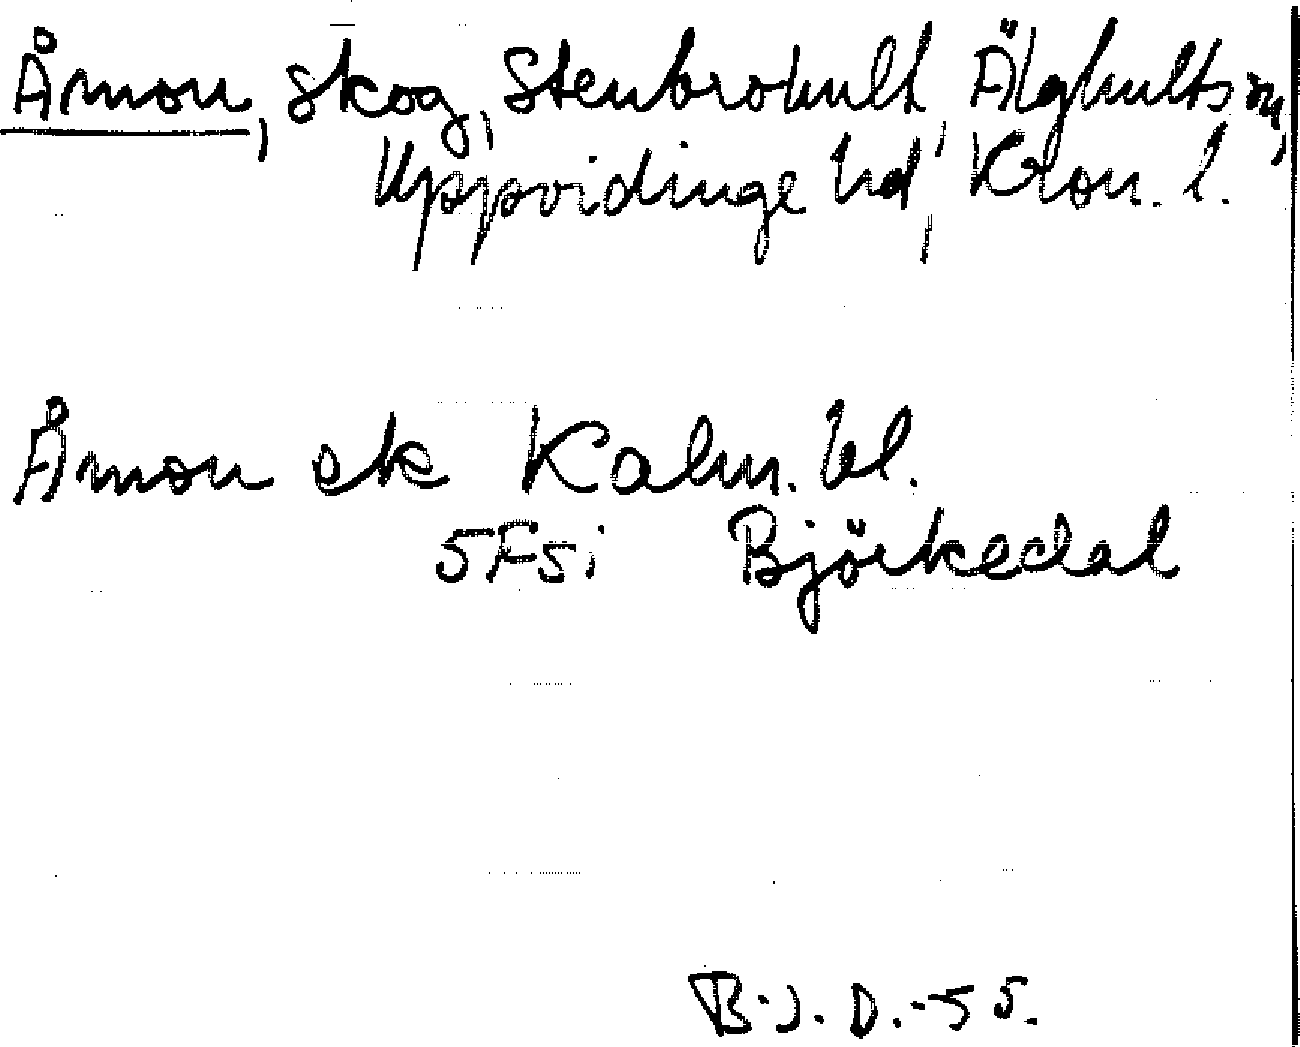 Åmon, skog, Stenbrohult, Älghults sn,
Uppvidinge hd, Kron. l.
Åmon ek Kalm. bl.
5F5i Björkedal
B.J.D.-55.